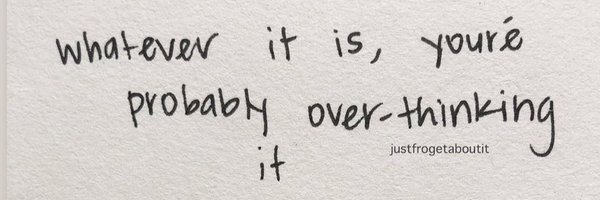 whatever it is, youré
probably over-thinking
it
justfrogetaboutit